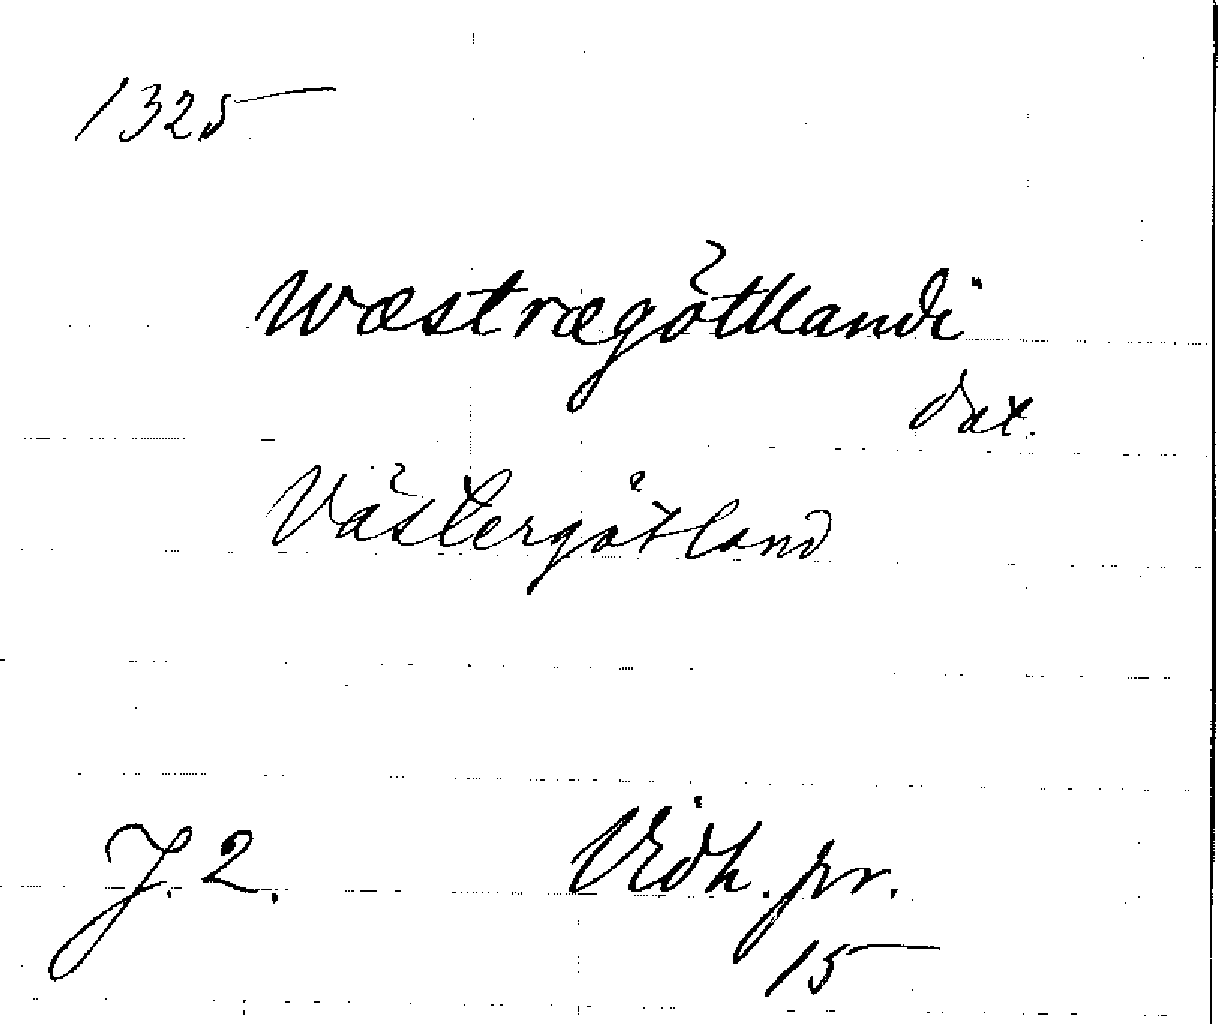 1325
wæstrægötllandi
dat.
Västergötland
J. 2. Vidh. pr.
15